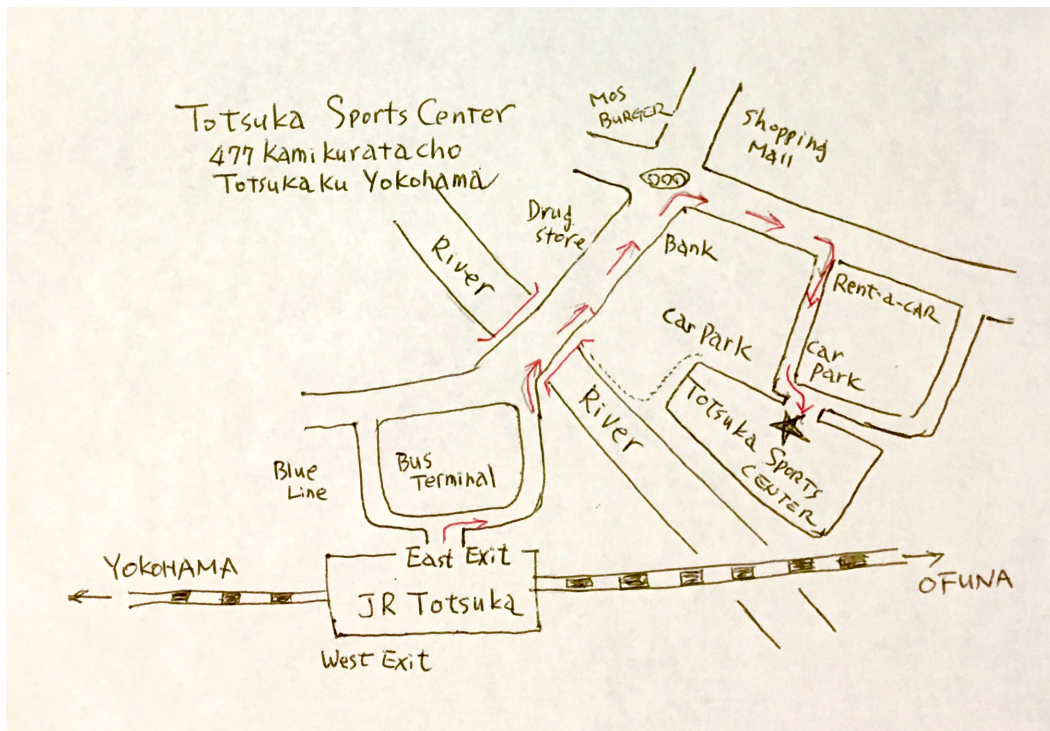 Totsuka Sports Center
477 Kamikuratacho
Totsukaku Yokohama
Mos
BURGER
Shopping
Mall
Drug
Store
River
Bank
Rent-a-CAR
Car Park
Car
Park
River
TOTSUKA SPORTS
CENTER
Blue
Line
Bus
Terminal
YOKOHAMA
East Exit
JR Totsuka
OFUNA
West Exit